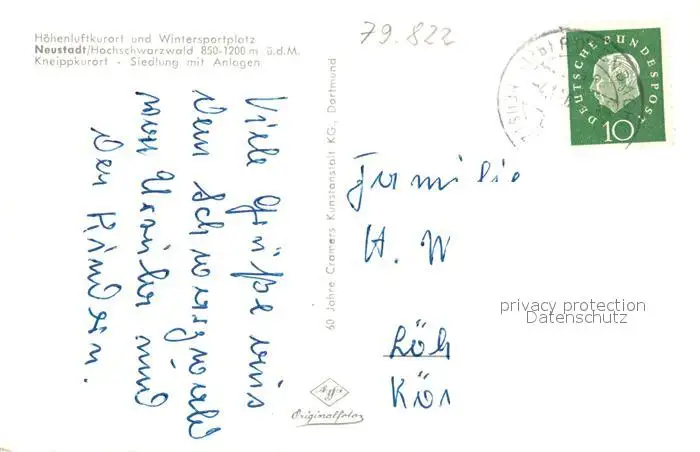 Höhenluftkurort und Wintersportplatz
Neustadt/Hochschwarzwald 850-1200 m ü.d.M.
Kneippkurort - Siedlung mit Anlagen
79.822
DEUTSCHE BUNDESPOST
10
Viele Grüße aus
dem Schwarzwald
von und
den Kindern.
60 Jahre Cramers Kunstanstalt KG., Dortmund
Familie
H. W
Löh
Kör
privacy protection
Datenschutz
Agfa
Originalfoto